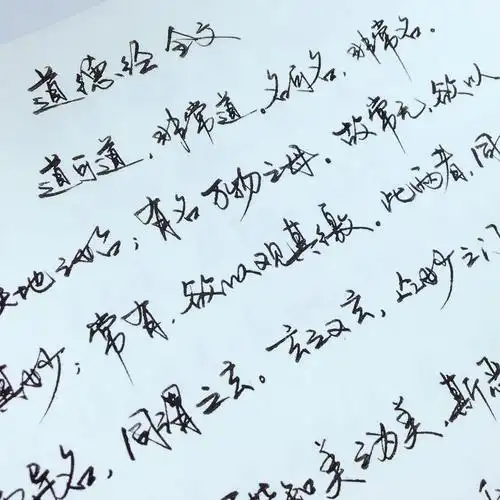 道德经全文
道可道，非常道。名可名，非常名。
天地之始；有名万物之母。故常无，欲以
其妙；常有，欲以观其徼。此两者，同
异名，同谓之玄。玄之又玄，众妙之门
知美之为美，斯恶